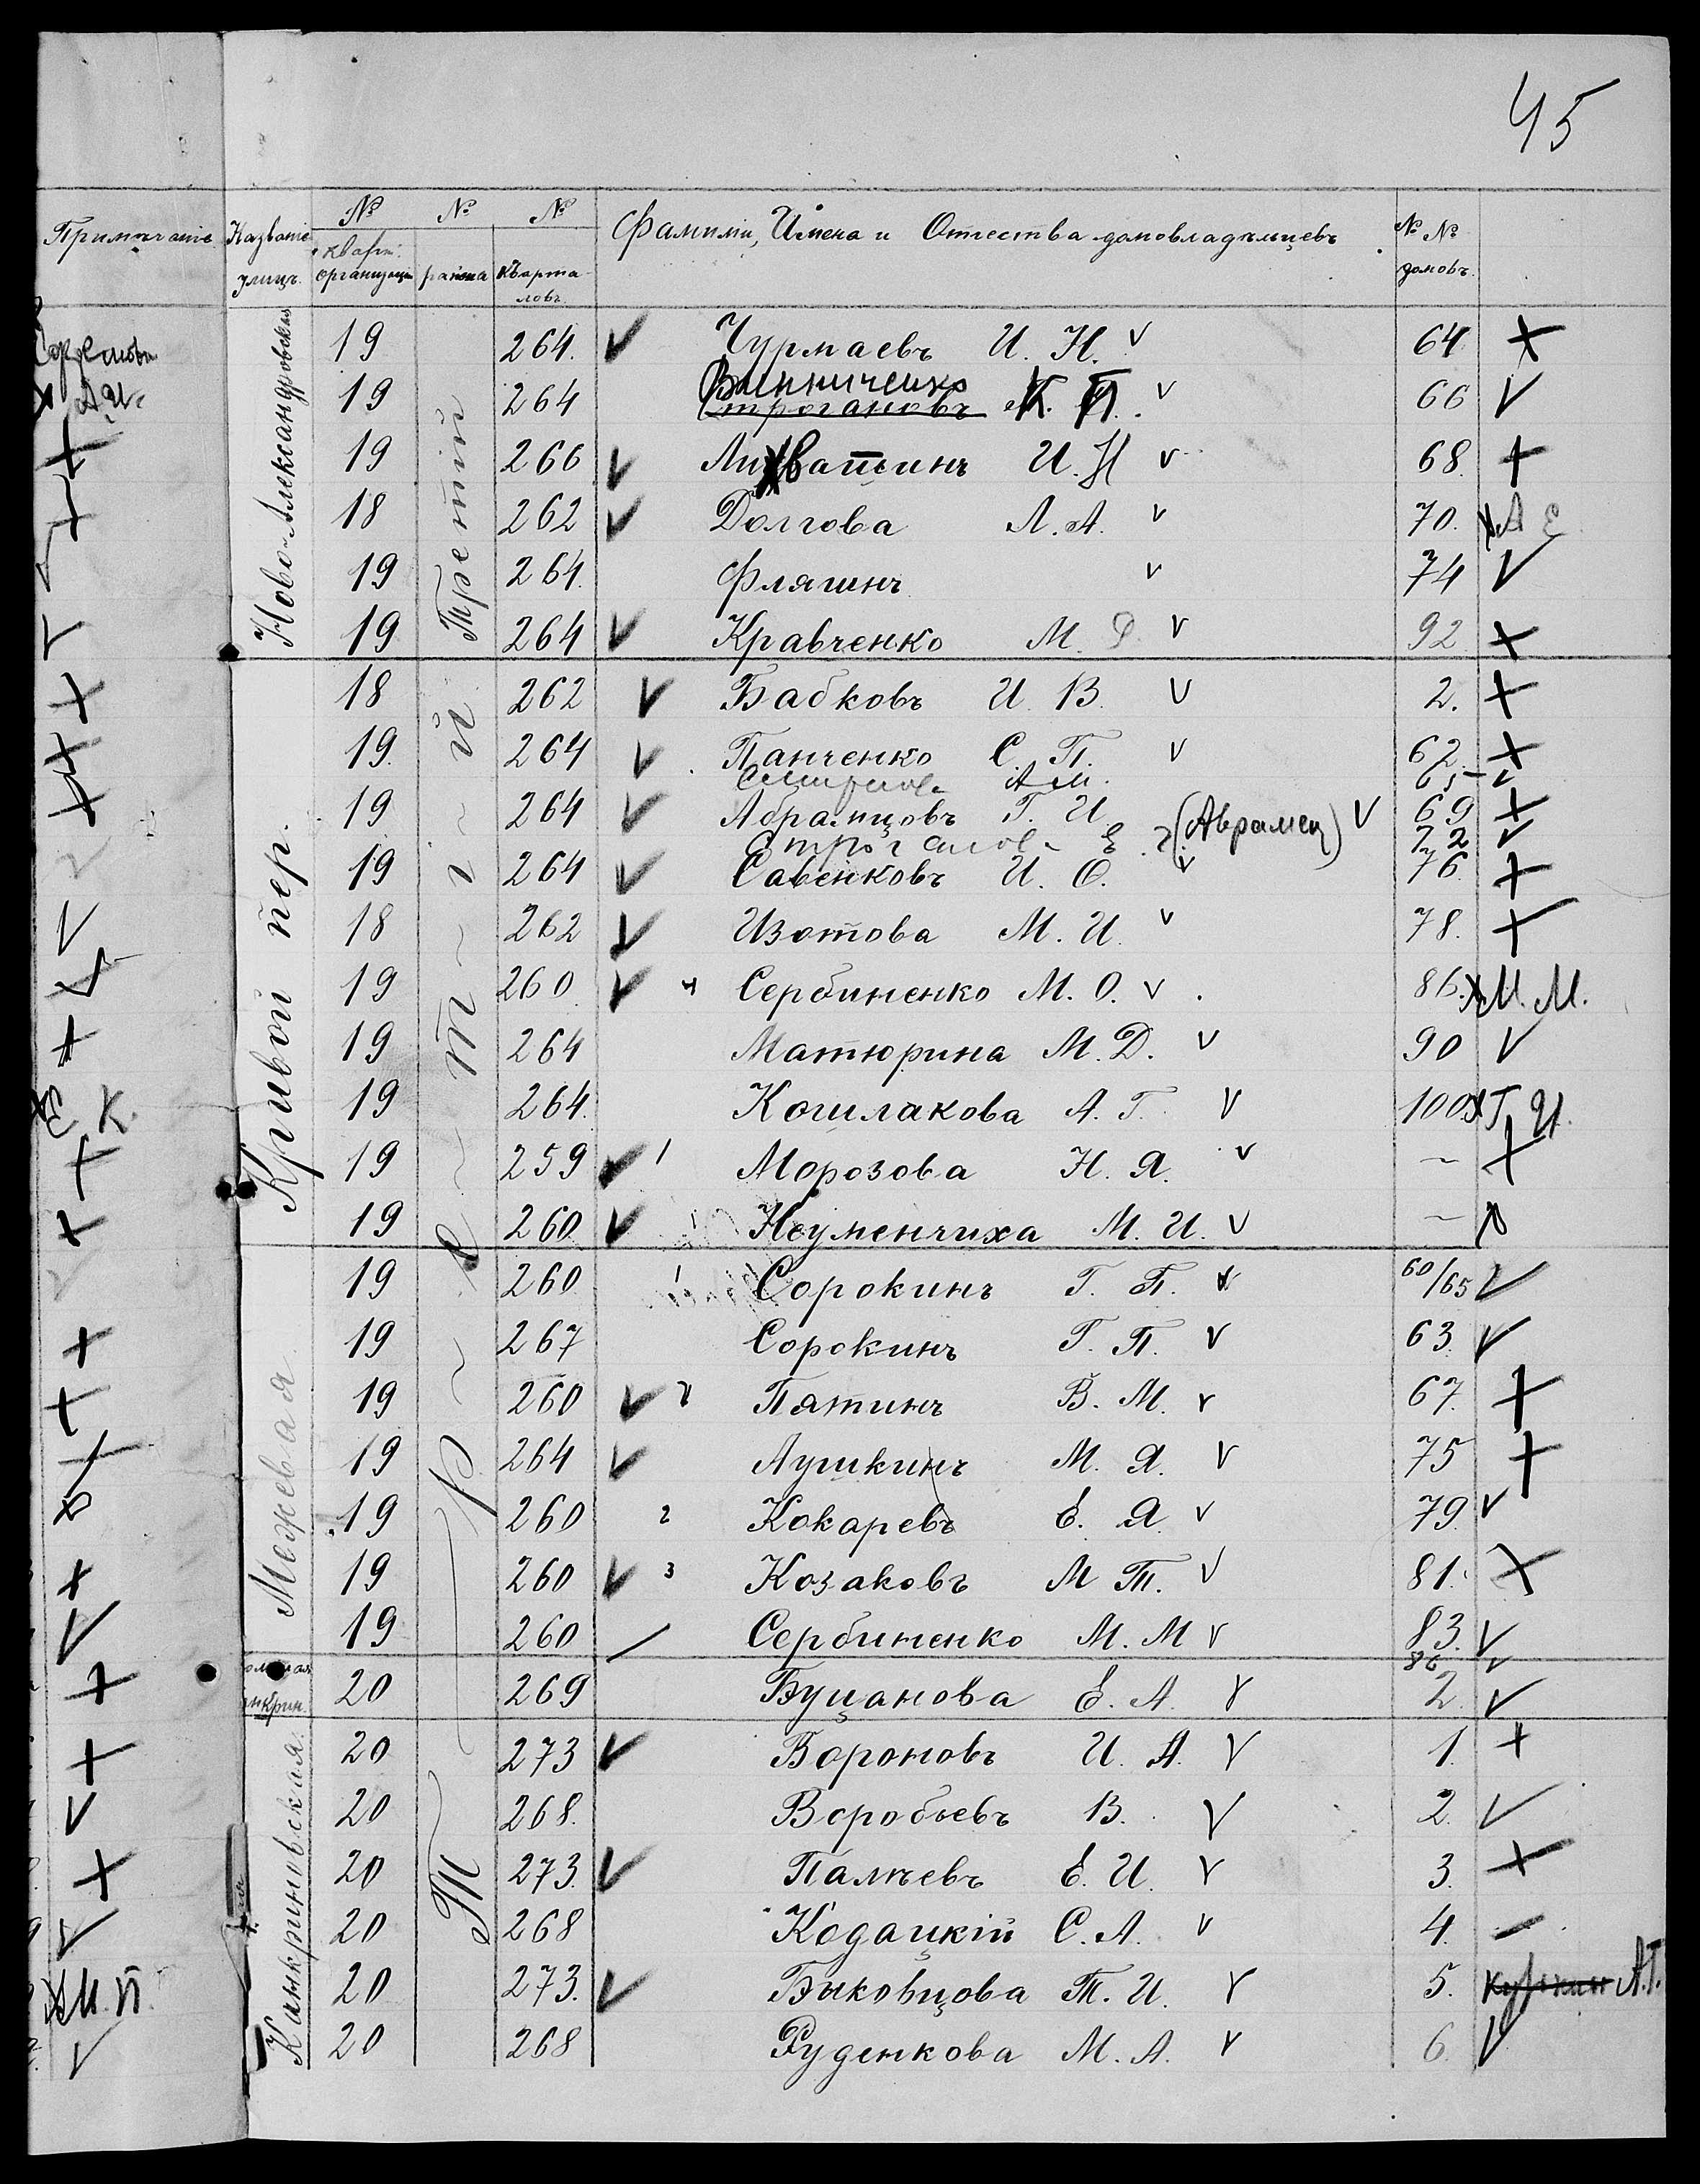 45
Примѣчаніе
Названіе улицъ.
№ кварт. организаціи
№ района
№ Кварталовъ
Фамиліи, Имена и Отчества домовладѣльцевъ
№ № домовъ.
Ново-Александровская
Третій
19 264. Чурмаевъ И. Н. 64
19 264 Винниченко К. П. 66
Строгановъ
19 266 И. Н 68.
18 262 Долгова Л. А. 70. А Е
19 264. Флягинъ 74
19 264 Кравченко М. Ф. 92
Кривой пер.
Третій
18 262 Бабковъ И. В. 2.
19. 264 Панченко С. П. 62.
Смирнов А М. 65
19 264 Абрамцовъ Г. И. (Аврамец) 69
Строганов Е. 72
19 264 Савенковъ И. О. 76.
18 262 Изотова М. И. 78.
19 260. 4 Сербиненко М. О. 86. М. М.
19 264 Матюрина М. Д. 90
19 264. Кошлакова А. Г. 100 Г. И.
19 259 1 Морозова Н. Я. ~
19 260. Неуменчиха М. И. ~
Межевая
19 260 1 Сорокинъ Г. П. 60/65
19 267 Сорокинъ Г. П. 63.
19 260 Пятинъ В. М. 67.
19 264 Лушкинъ М. Я. 75
19 260 2 Кокаревъ Е. Я. 79.
19 260 3 Козаковъ М Т. 81.
19 260 Сербиненко М. М 83.
86
20 269 Буцанова Е. А. 2.
Канкриновская.
20 273 Вороновъ И. А. 1.
20 268. Воробьевъ В. 2.
20 273. Палѣевъ Е. И. 3.
20 268 Кодацкій С. А. 4.
20 273. Быковцова Т. И. 5. А. Г.
20 268 Руденкова М. А. 6.
Е К.
И. П.